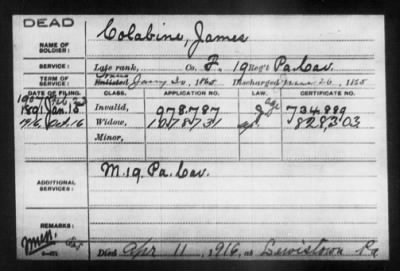 DEAD
NAME OF SOLDIER: Colabine, James
SERVICE: Late rank, Co. F, 19 Reg't Pa. Cav.
TERM OF SERVICE: Enlisted Jany 1865 Discharged June 26, 1865
DATE OF FILING. CLASS. APPLICATION NO. LAW. CERTIFICATE NO.
1907 Feb
1891 Jan. 15 Invalid, 978.787 G age 734.889
Oct. 16 Widow, 1078731 828303
Minor,
ADDITIONAL SERVICES: M. 19 Pa. Cav.
REMARKS:
Died Apr 11, 1916, at Lewistown Pa